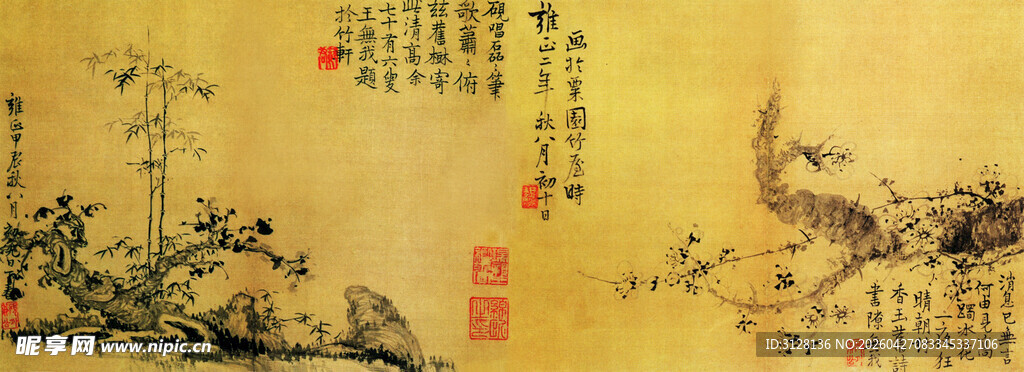 消息已無言
何由見高
躅冰花
一夜狂
晴朝
香王詩
書隙我
画於栗園竹屋時
雍正二年秋八月初十日
硯唱磊〻筆
歌蕭〻俯
茲舊楙寄
此清高余
七十有六叟
王無我題
於竹軒
雍正甲辰秋八月
昵享网 www.nipic.cn
ID:3128136 NO:20260427083345337106